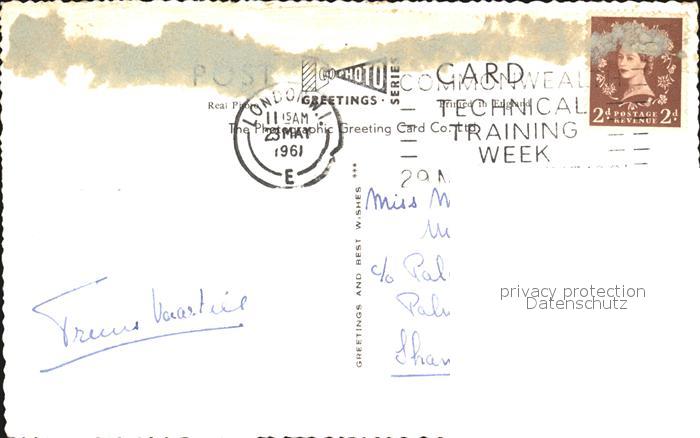 POST CARD
GO PHOTO
SERIES
GREETINGS
Real Photo
Printed in England
The Photographic Greeting Card Co. Ltd.
LONDON. W.1.
11 15AM
23 MAY
1961
E
COMMONWEAL
TECHNICAL
TRAINING
WEEK
29 M
2d POSTAGE 2d
REVENUE
GREETINGS AND BEST WISHES
Miss M
c/o Pal
Palm
Shan
privacy protection
Datenschutz